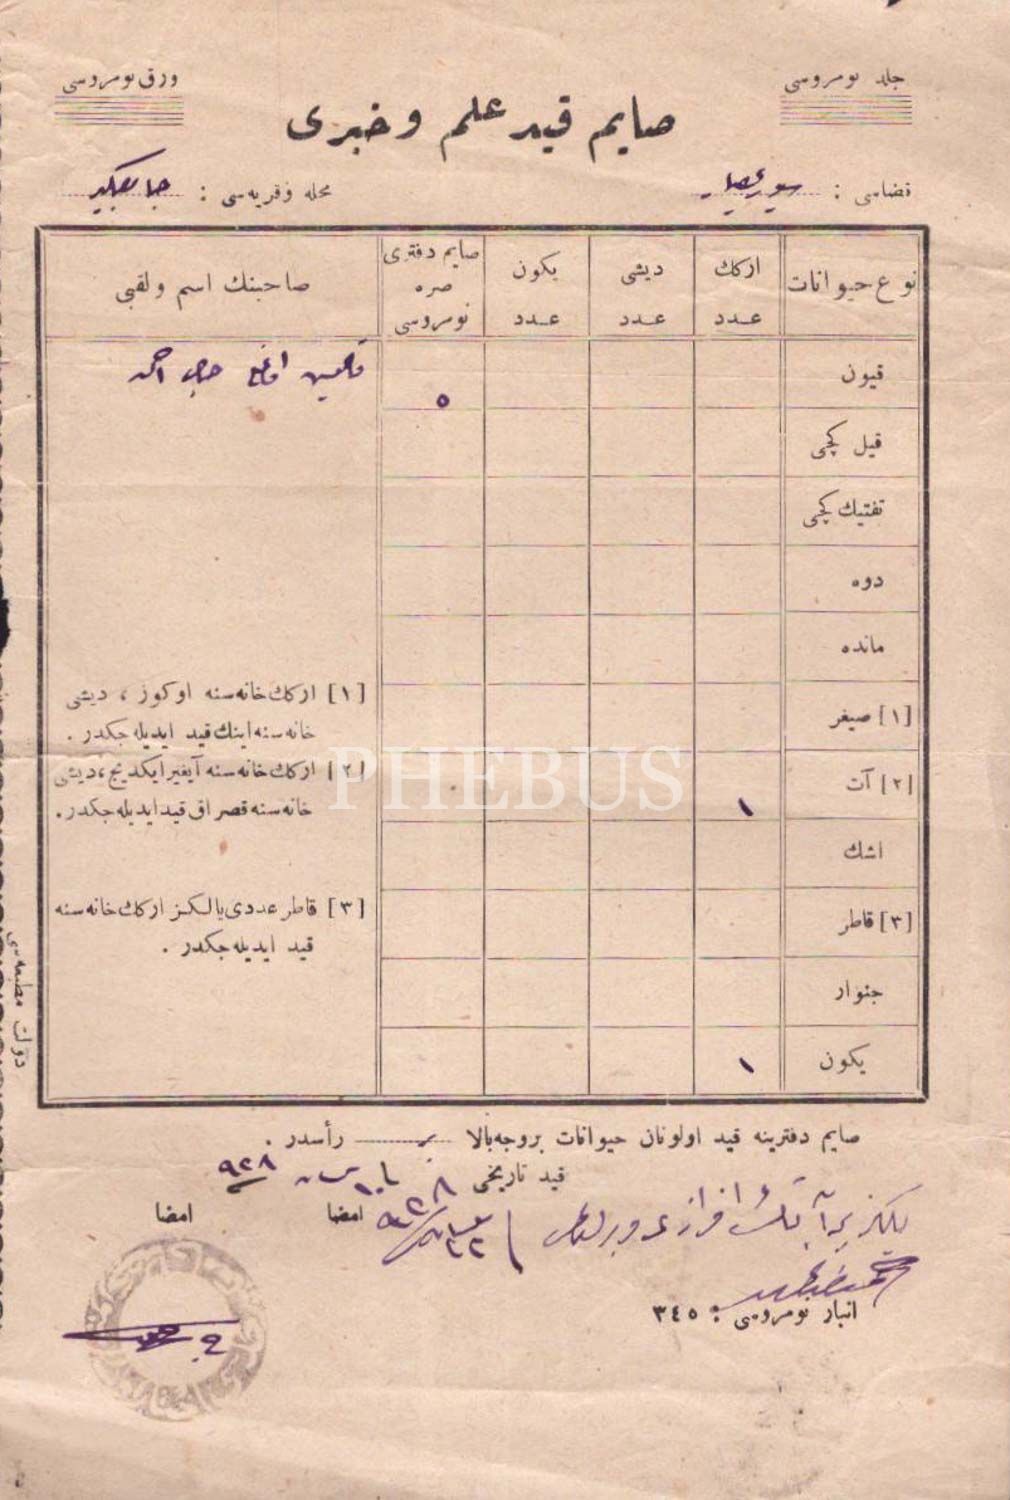 جلد نومروسی
ورق نومروسی
صایم قید علم و خبری
قضاسی : سوریحصار
محله و قریه‌سی :
نوع حیوانات
ارکك عـدد
دیشی عـدد
یکون عـدد
صایم دفتری صره نومروسی
صاحبنك اسم ولقبی
قیون
٥
قیل کچی
تفتیك کچی
دوه
مانده
[١] صیغر
[٢] آت
١
اشك
[٣] قاطر
جنوار
یکون
١
[١] ارکك خانه‌سنه اوکوز ، دیشی
خانه‌سنه اینك قید ایدیله‌جکدر .
[٢] ارکك خانه‌سنه آیغیر ایکدیج ، دیشی
خانه‌سنه قصراق قید ایدیله‌جکدر .
[٣] قاطر عددی یالکز ارکك خانه‌سنه
قید ایدیله‌جکدر .
PHEBUS
دولت مطبعه‌سی
صایم دفترینه قید اولونان حیوانات بروجه‌بالا بر رأسدر .
قید تاریخی نیسان ٩٢٨
امضا
امضا
انبار نومروسی : ٣٤٥